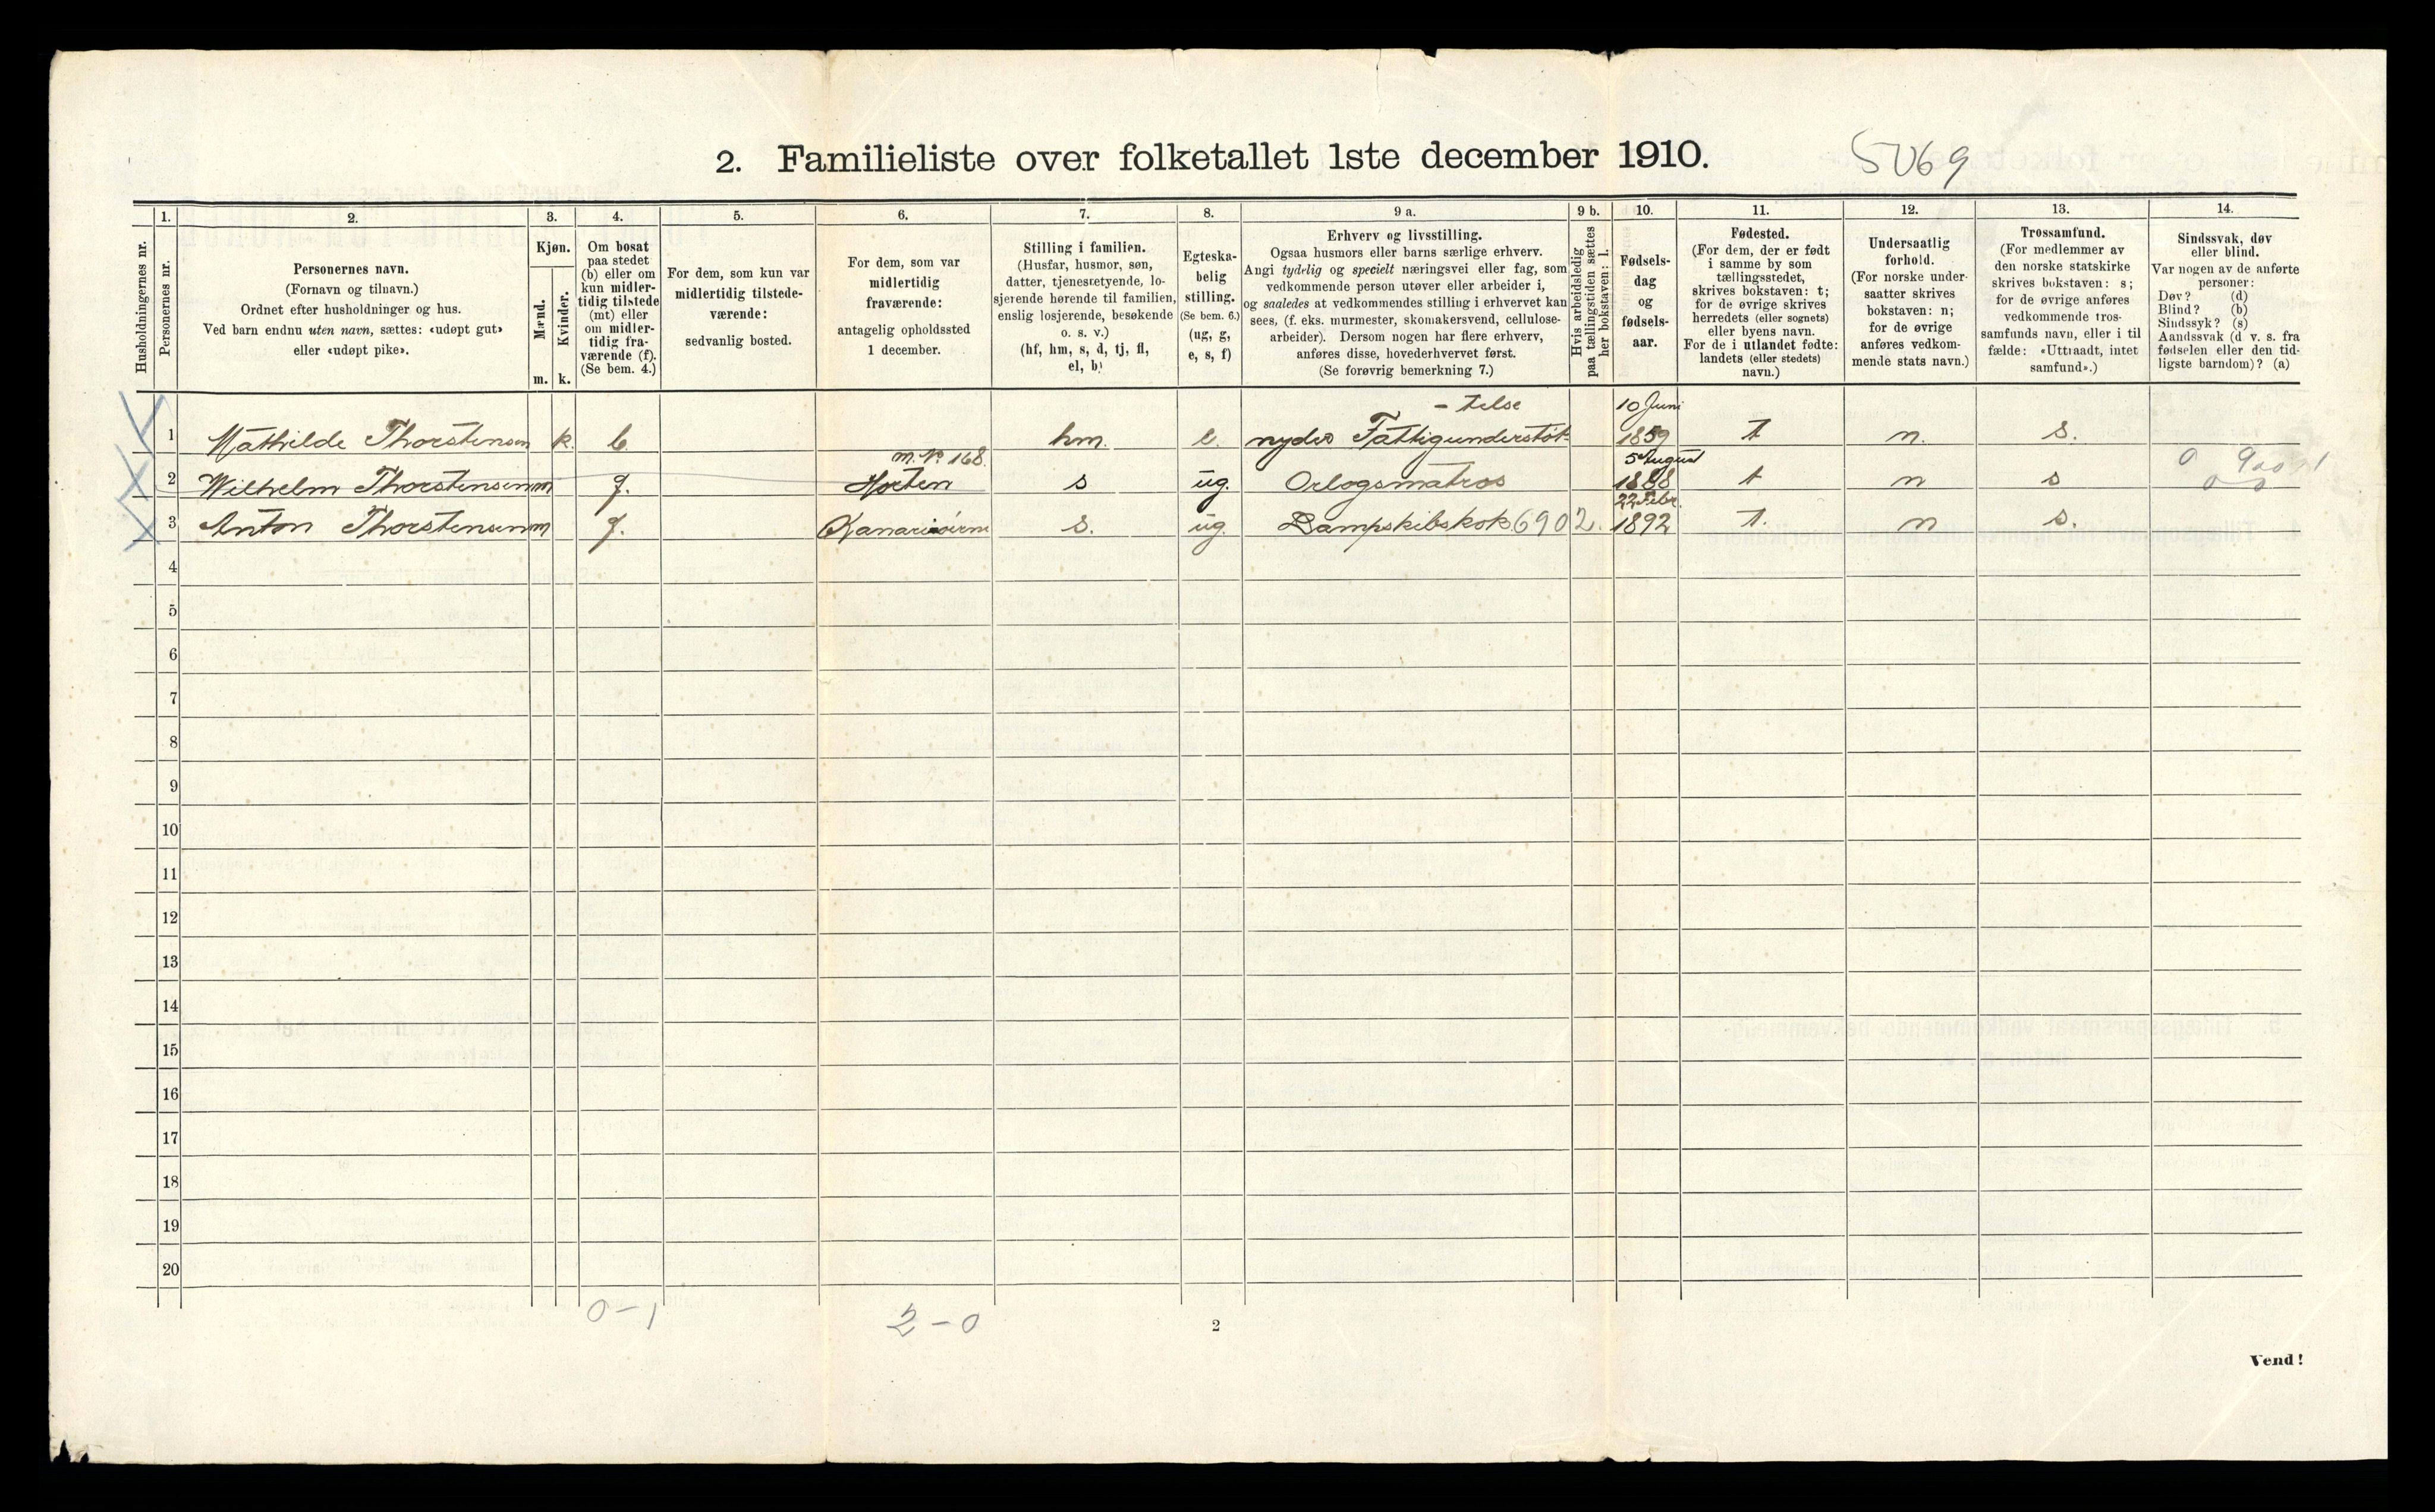 2. Familieliste over folketallet 1ste december 1910.
Husholdningernes nr.
1.
Personernes nr.
2.
Personernes navn.
(Fornavn og tilnavn.)
Ordnet efter husholdninger og hus.
Ved barn endnu uten navn, sættes: «udøpt gut»
eller «udøpt pike».
3.
Kjøn.
Mænd.
Kvinder.
m. k.
4.
Om bosat
paa stedet
(b) eller om
kun midler-
tidig tilstede
(mt) eller
om midler-
tidig fra-
værende (f).
(Se bem. 4.)
5.
For dem, som kun var
midlertidig tilstede-
værende:
sedvanlig bosted.
6.
For dem, som var
midlertidig
fraværende:
antagelig opholdssted
1 december.
7.
Stilling i familien.
(Husfar, husmor, søn,
datter, tjenestetyende, lo-
sjerende hørende til familien,
enslig losjerende, besøkende
o. s. v.)
(hf, hm, s, d, tj, fl,
el, b)
8.
Egteska-
belig
stilling.
(Se bem. 6.)
(ug, g,
e, s, f)
9 a.
Erhverv og livsstilling.
Ogsaa husmors eller barns særlige erhverv.
Angi tydelig og specielt næringsvei eller fag, som
vedkommende person utøver eller arbeider i,
og saaledes at vedkommendes stilling i erhvervet kan
sees, (f. eks. murmester, skomakersvend, cellulose-
arbeider). Dersom nogen har flere erhverv,
anføres disse, hovederhvervet først.
(Se forøvrig bemerkning 7.)
9 b.
Hvis arbeidsledig
paa tællingstiden sættes
her bokstaven: l.
10.
Fødsels-
dag
og
fødsels-
aar.
11.
Fødested.
(For dem, der er født
i samme by som
tællingsstedet,
skrives bokstaven: t;
for de øvrige skrives
herredets (eller sognets)
eller byens navn.
For de i utlandet fødte:
landets (eller stedets)
navn.)
12.
Undersaatlig
forhold.
(For norske under-
saatter skrives
bokstaven: n;
for de øvrige
anføres vedkom-
mende stats navn.)
13.
Trossamfund.
(For medlemmer av
den norske statskirke
skrives bokstaven: s;
for de øvrige anføres
vedkommende tros-
samfunds navn, eller i til-
fælde: «Uttraadt, intet
samfund».)
14.
Sindssvak, døv
eller blind.
Var nogen av de anførte
personer:
Døv? (d)
Blind? (b)
Sindssyk? (s)
Aandssvak (d. v. s. fra
fødselen eller den tid-
ligste barndom)? (a)
- telse 10 Juni
1 Mathilde Thorstensen k. b. hm. e. nyder Fattigunderstöt- 1859 t n. s.
m. No 168. 5 August
2 Wilhelm Thorstensen m f. Horten s ug. Orlogsmatros 1888 t n s
22 Febr.
3 Anton Thorstensen m f. Kanariøerne s. ug. Dampskibskok 6902. 1892 t. n s.
4
5
6
7
8
9
10
11
12
13
14
15
16
17
18
19
20
0-1 2-0
2
Vend!